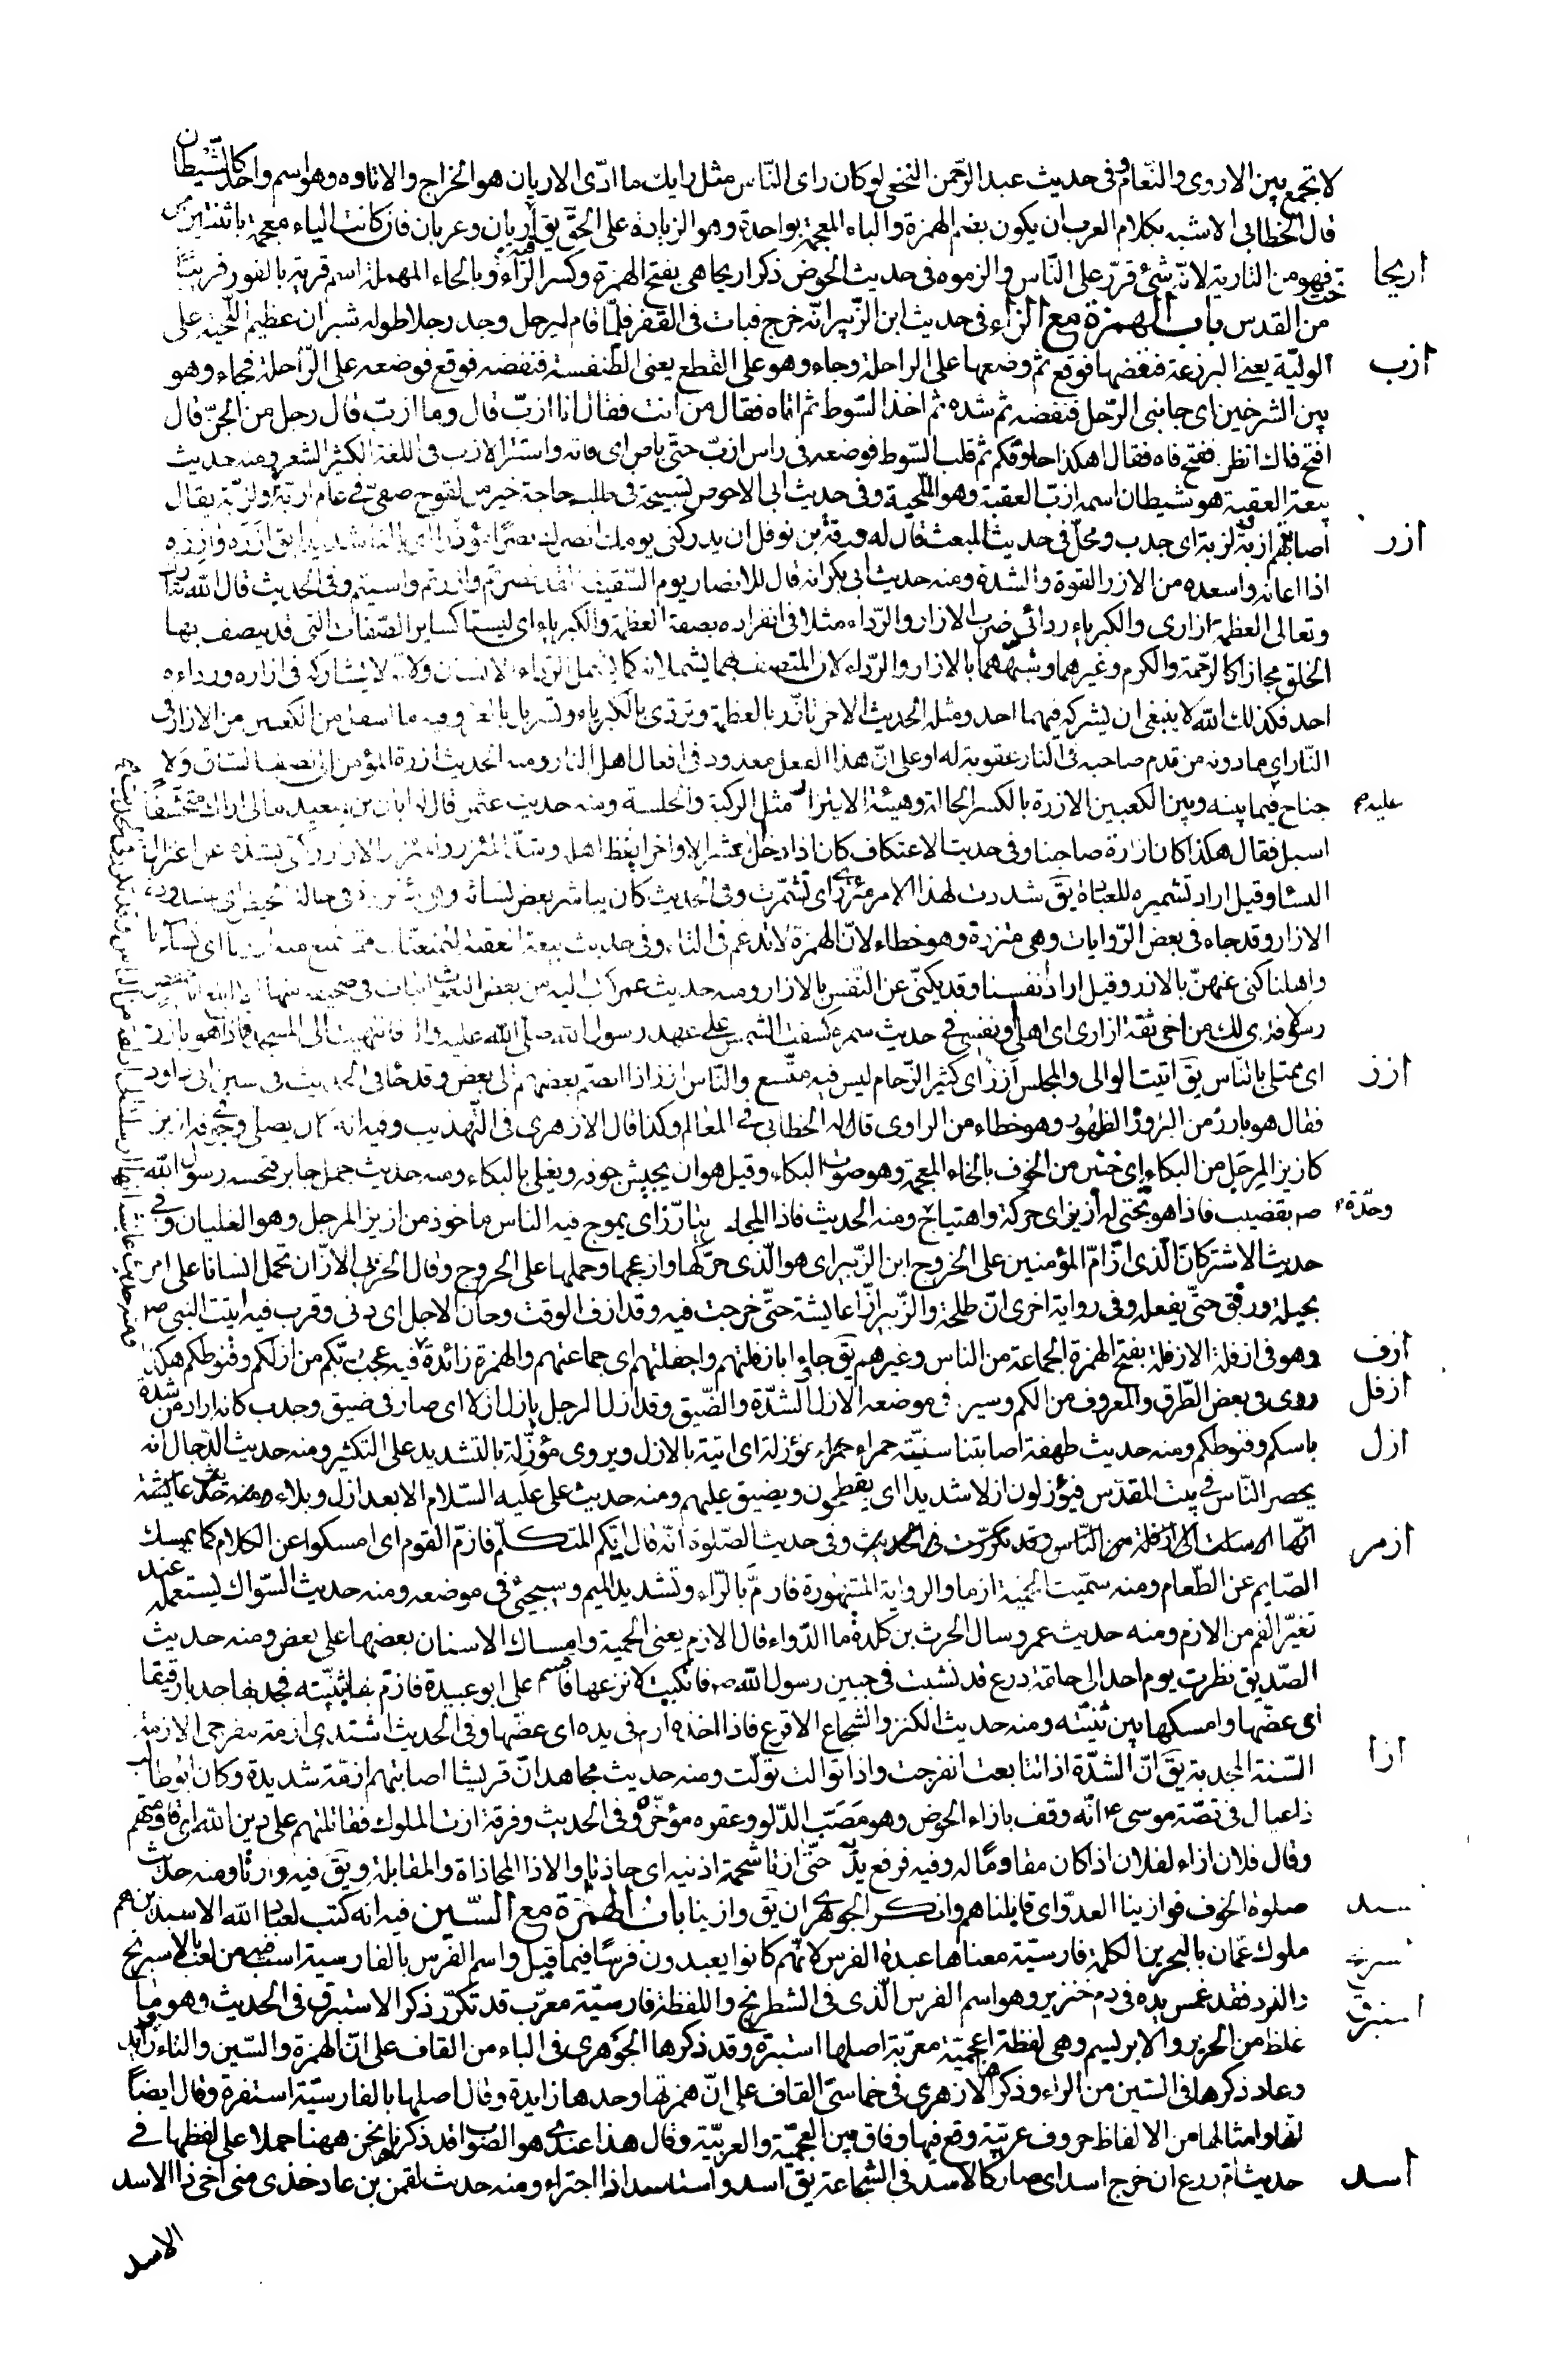 لا تجمع بين الاروى والنّعام وفى حديث عبد الرّحمن النخعى لو كان راى النّاس مثل رايك ما ادّى الاريان هو الخراج والاتاوه وهو اسم واحد كالشّيطان
قال الخطابى الاشبه بكلام العرب ان يكون بضم الهمزة والباء المعجمة بواحدة وهو الزيادة على الحقّ يق اربان وعربان فان كانت الياء معجمة باثنتين من
اريحا
تحت فهو من التارية لانّه شئ قرّر على النّاس والزموه فى حديث الحوض ذكر اريحا هى بفتح الهمزة وكسر الرّاء وبالحاء المهملة اسم قرية بالغور قريبًا
من القدس باب الهمزة مع الزاء فى حديث ابن الزّبير انّه خرج فبات فى القفر فلمّا قام ليرحل وجد رجلا طوله شبران عظيم اللّحية على
ازب
الوليّة يعنى البرذعة فنفضها فوقع ثم وضعها على الراحلة وجاء وهو على القطع يعنى الطّنفسة فنفضه فوقع فوضعه على الرّاحلة فجاء وهو
بين الشرخين اى جانبى الرّحل فنفضه ثم شده ثم اخذ السّوط ثم اتاه فقال من انت فقال انا ازبّ قال وما ازبّ قال رجل من الجنّ قال
افتح فاك انظر ففتح فاه فقال اهكذا حلوقكم ثم قلب السّوط فوضعه فى راس ازبّ حتّى باص اى فاته واستتر الازب فى اللغة الكثير الشعر ومنه حديث
بيعة العقبة هو شيطان اسمه ازبّ العقبة وهو الحيّة وفى حديث ابى الاحوص لتسبيحة فى طلب حاجة خير من لقوح صفىّ فى عام ازبة ولزبة يقال
ازر
اصابتهم ازبة ولزبة اى جدب ومحل فى حديث المبعث قال له ورقة بن نوفل ان يدركنى يومك انصرك نصرًا مؤزّرا اى بالغا شديدا يق ازّره وآزره
اذا اعانه واسعده من الازر القوة والشدة ومنه حديث ابى بكر انه قال للانصار يوم السّقيفة لقد نصرتم وآزرتم وآسيتم وفى الحديث قال الله تبارك
وتعالى العظمة ازارى والكبرياء ردائى ضرب الازار والرّداء مثلا فى انفراده بصفة العظمة والكبرياء اى ليستا كساير الصّفات التى قد يتصف بها
الخلق مجازا كالرّحمة والكرم وغيرهما وشبّههما بالازار والرّداء لان المتصف بهما يشملانه كما يشمل الرّداء الانسان ولانّه لا يشاركه فى ازاره ورداءه
احد فكذلك الله لا ينبغى ان يشركه فيهما احد ومثله الحديث الاخر تازّر بالعظمة وتردّى بالكبرياء وتسربل بالعز وفيه ما اسفل من الكعبين من الازار فى
النّار اى ما دونه من قدم صاحبه فى النار عقوبة له او على انّ هذا الفعل معدود فى افعال اهل النار ومنه الحديث ازرة المؤمن الى نصف السّاق ولا
جناح عليه فيما بينه وبين الكعبين الازرة بالكسر الحالة وهيئة الايتزار مثل الركبة والجلسة ومنه حديث عثمن قال له ابان بن سعيد مالى اراك متحشّفا
اسبل فقال هكذا كان ازرة صاحبنا وفى حديث الاعتكاف كان اذا دخل العشر الاواخر ايقظ اهله وشدّ المئزر والمئزر الازار وكنّى بشدّه عن اعتزال
النساء وقيل اراد تشميره للعبادة يق شددت لهذا الامر مئزرى اى تشمّرت وفى الحديث كان يباشر بعض نسائه وهى مؤتزرة فى حالة الحيض اى مشدودة
الازار وقد جاء فى بعض الرّوايات وهى متّزرة وهو خطاء لانّ الهمزة لا تدغم فى التاء وفى حديث بيعة العقبة لنمنعنّك مما نمنع منه ازرنا اى نساءنا
واهلنا كنى عنهنّ بالازر وقيل اراد انفسنا وقد يكنّى عن النّفس بالازار ومنه حديث عمر كتب اليه من بعض البعوث ابيات فى صحيفة منها الا ابلغ ابا حفص
رسولا فدى لك من اخى ثقة ازارى اى اهلى ونفسى فى حديث سمرة كسفت الشمس على عهد رسول الله صلّى الله عليه واله فانتهيت الى المسجد فاذا هو بازز
ازز
اى ممتلى بالنّاس يق اتيت الوالى والمجلس ازز اى كثير الزّحام ليس فيه متّسع والنّاس ازز اذا انضم بعضهم الى بعض وقد جاء فى الحديث فى سنن ابى داود
فقال هو بارز من البروز الظهور وهو خطاء من الراوى قال له الخطابى فى المعالم وكذا قال الازهرى فى التّهذيب وفيه انه كان يصلّى وجوفه ازيز
كازيز المِرجَل من البكاء اى خنين من الخوف بالخاء المعجمة وهو صوت البكاء وقيل هو ان يجيش جوفه ويغلى بالبكاء ومنه حديث جمل جابر فنخسه رسول الله
ص بقضيب فاذا هو تحتى له ازيز اى حركة واهتياج وحدّة ومنه الحديث فاذا المجلس يتازّز اى يموج فيه الناس ماخوذ من ازيز المرجل وهو الغليان وفى
حديث الاشتر كان الّذى ازّ امّ المؤمنين على الخروج ابن الزّبير اى هو الّذى حرّكها وازعجها وحملها على الخروج وقال الحربى الازّ ان تحمل انسانا على امر
بحيلة ورفق حتّى يفعله وفى رواية اخرى انّ طلحة والزّبير ازّا عايشة حتّى خرجت فيه وقد ازف الوقت وحان الاجل اى دنى وقرب فيه اتيت النبى ص
ازف
ازفل
وهو فى ازفلة الازفلة بفتح الهمزة الجماعة من الناس وغيرهم يق جاءوا بازفلتهم واجفلتهم اى جماعتهم والهمزة زائدة فيه عجب ربّكم من ازلكم وقنوطكم هكذا
روى فى بعض الطّرق والمعروف من الكم وسيرد فى موضعه الازل الشدّة والضّيق وقد ازل الرجل يازل ازلا اى صار فى ضيق وجدب كانه اراد من شدة
ازل
باسكم وقنوطكم ومنه حديث طهفة اصابتنا سنيّة حمراء مؤزلة اى اتية بالازل ويروى مؤزّلة بالتشديد على التكثير ومنه حديث الدّجال انه
يحصر النّاس فى بيت المقدّس فيؤزلون ازلا شديدا اى يقحطون ويضيق عليهم ومنه حديث على عليه السّلام الا بعد ازل وبلاء ومنه حديث عايشة
ازم
انّها ارسلت الى ازفلة من النّاس وقد تكرّرت فى الحديث وفى حديث الصّلوة انّه قال ايّكم المتكلّم فازمّ القوم اى امسكوا عن الكلام كما يمسك
الصّايم عن الطّعام ومنه سمّيت الحمية ازما والرواية المشهورة فارمّ بالرّاء وتشديد الميم وسيجئ فى موضعه ومنه حديث السّواك يستعمله عند
تغيّر الفم من الازم ومنه حديث عمر وسال الحرث بن كلدة ما الدّواء قال الازم يعنى الحمية وامساك الاسنان بعضها على بعض ومنه حديث
الصّديق نظرت يوم احد الى حلقة درع قد نشبت فى جبين رسول الله ص فانكببت لانزعها فاقسم على ابو عبيدة فازم بها بثنيّته فجذبها جذبا رفيقا
اى عضّها وامسكها بين ثنيّته ومنه حديث الكنز والشجاع الاقرع فاذا اخذه ازم فى يده اى عضّها وفى الحديث اشتدى ازمة تنفرجى الازمة
ازا
السّنة المجدبة يق انّ الشدّة اذا تتابعت انفرجت واذا توالت تولّت ومنه حديث مجاهد انّ قريشا اصابتهم ازمة شديدة وكان ابو طالب
ذا عيال فى قصّة موسى ع انّه وقف بازاء الحوض وهو مَصَبّ الدّلو وعقره مؤخّره وفى الحديث وفرقة ازت الملوك فقاتلتهم على دين الله اى قاومتهم
وقال فلان ازاء لفلان اذا كان مقاومًا له وفيه فرفع يديه حتّى ازتا شحمة اذنيه اى حاذتا والازا المحاذاة والمقابلة ويق فيه وازتا ومنه حديث
سبد
صلوة الخوف فوازينا العدوّ اى قابلناهم وانكر الجوهرى ان يق وازينا باب الهمزة مع السّين فيه انه كتب لعباد الله الاسبذين هم
ملوك عُمان بالبحرين الكلمة فارسيّة معناها عبدة الفرس لانّهم كانوا يعبدون فرسًا فيما قيل واسم الفرس بالفارسية اسب فيه من لعب بالاسبرنج
والنرد فقد غمس يده فى دم خنزير وهو اسم الفرس الّذى فى الشطرنج واللفظة فارسيّة معرّب قد تكرّر ذكر الاستبرق فى الحديث وهو ما
استبرق
غلظ من الحرير والابريسم وهى لفظة اعجميّة معرّبة اصلها استبره وقد ذكرها الجوهرى فى الباء من القاف على انّ الهمزة والسّين والتاء زوايد
وعاد ذكرها فى السّين من الراء وذكرها الازهرى فى خماسىّ القاف على انّ همزتها وحدها زايدة وقال اصلها بالفارسيّة استفره وقال ايضًا
انّها وامثالها من الالفاظ حروف عربيّة وقع فيها وفاق بين العجميّة والعربيّة وقال هذا عندى هو الصّواب قد ذكرناها نحن ههنا حملا على لفظها فى
اسد
حديث امّ زرع ان خرج اسد اى صار كالاسد فى الشّجاعة يق اسد واستاسد اذا اجتراء ومنه حديث لقمن بن عاد خذى منى اخى ذا الاسد
الاسد